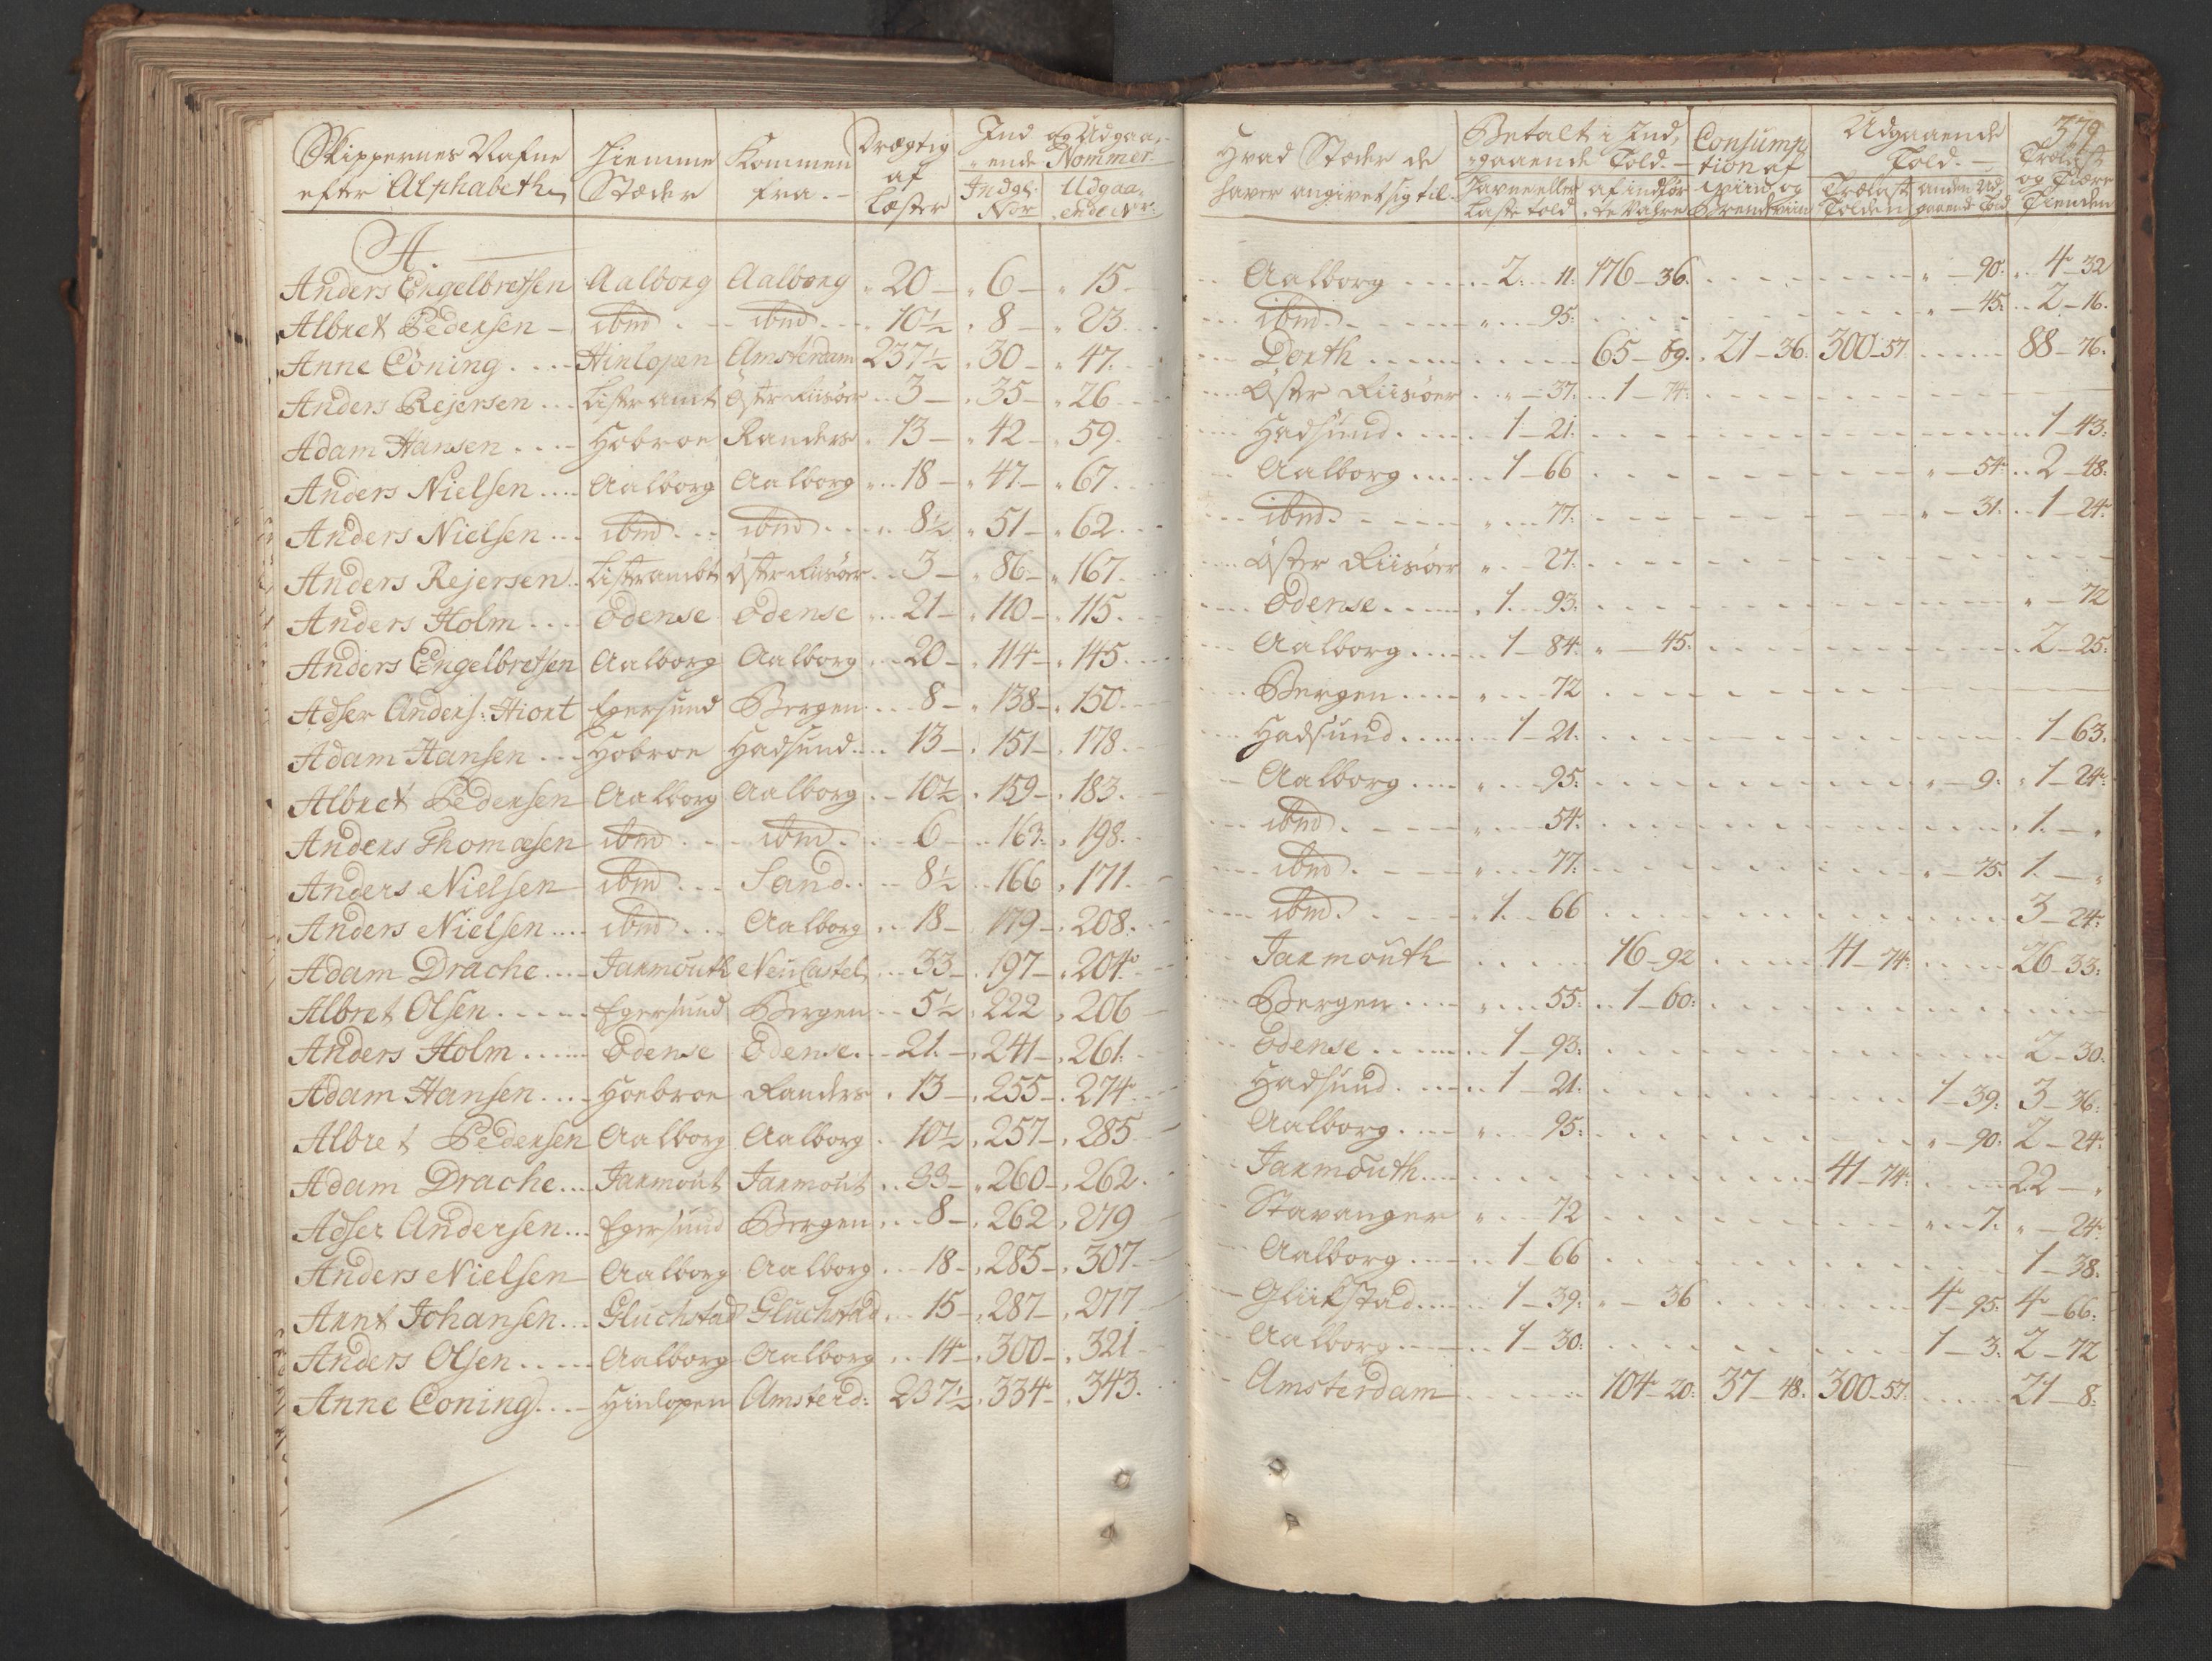 Skippernes Nafne efter Alphabethen | Hiemme Stæder | Kommen fra | Drægtig af Læster | Ind og Udgaaende Nommer: Indgl: Nor | Udgaaende Nr:
A.
Anders Engelbretsen | Aalborg | Aalborg | 20 | 6 | 15
Albret Pedersen | ibid | ibid | 10½ | 8 | 23
Anne Coning | Hinlopen | Amsterdam | 237½ | 30 | 47
Anders Rejersen | Lister amt | Öster Riisöer | 3 | 35 | 26
Adam Hansen | Hobroe | Randers | 13 | 42 | 59
Anders Nielsen | Aalborg | Aalborg | 18 | 47 | 67
Anders Nielsen | ibid | ibid | 8½ | 51 | 62
Anders Rejersen | Listerambt | Öster Riisöer | 3 | 86 | 167
Anders Holm | Odense | Odense | 21 | 110 | 115
Anders Engelbretsen | Aalborg | Aalborg | 20 | 114 | 145
Adser Anders: Hiort | Egersund | Bergen | 8 | 138 | 150
Adam Hansen | Hobroe | Hadsund | 13 | 151 | 178
Albret Pedersen | Aalborg | Aalborg | 10½ | 159 | 183
Anders Thomæsen | ibid | ibid | 6 | 163 | 198
Anders Nielsen | ibid | Sand | 8½ | 166 | 171
Anders Nielsen | ibid | Aalborg | 18 | 179 | 208
Adam Drache | Jarmouth | NeuCastel | 33 | 197 | 204
Albret Olsen | Egersund | Bergen | 5½ | 222 | 206
Anders Holm | Odense | Odense | 21 | 241 | 261
Adam Hansen | Hoebroe | Randers | 13 | 255 | 274
Albret Pedersen | Aalborg | Aalborg | 10½ | 257 | 285
Adam Drache | Jarmout | Jarmout | 33 | 260 | 262
Adser Andersen | Egersund | Bergen | 8 | 262 | 279
Anders Nielsen | Aalborg | Aalborg | 18 | 285 | 307
Arnt Johansen | Gluchstad | Gluchstad | 15 | 287 | 277
Anders Olsen | Aalborg | Aalborg | 14 | 300 | 321
Anne Coning | Hinlopen | Amsterd: | 237½ | 334 | 343
379
Hvad Stæder de haver angivet sig til | Betalt i Indgaaende Told: Havne eller Laste told | af indførte Vahre | Consumption af Viin og Brendeviin | Udgaaende Told: Trælast Tolden | anden Udgaaende Told | Trælast og Tiære Tienden
Aalborg | 2 11 | 176-36 | | | 90 | 4-32
ibid | 95 | | | | 45 | 2-16
Porth | | 65-59 | 21-36 | 300-57 | | 88-76
Öster Riisöer | 37 | 1-74
Hadsund | 1-21 | | | | | 1-43
Aalborg | 1-66 | | | | 54 | 2-48
ibid | 77 | | | | 31 | 1-24
Öster Riisöer | 27
Odense | 1 93 | | | | | 72
Aalborg | 1-84 | 45 | | | | 2-25
Bergen | 72
Hadsund | 1-21 | | | | | 1-63
Aalborg | 95 | | | | 9 | 1-24
ibid | 54 | | | | | 1-
ibid | 77 | | | | 75 | 1-
ibid | 1 66 | | | | | 3-24
Jarmouth | | 16-92 | | 41-74 | | 26-33
Bergen | 55 | 1-60
Odense | 1-93 | | | | | 2-30
Hadsund | 1-21 | | | | 1-39 | 3-36
Aalborg | 95 | | | | 90 | 2-24
Jarmouth | | | | 41-74 | | 22-
Stavanger | 72 | | | | 7 | 24
Aalborg | 1-66 | | | | | 1-38
Gliikstad | 1-39 | 36 | | | 4-95 | 4-66
Aalborg | 1-30 | | | | 1-3 | 2-72
Amsterdam | | 104-20 | 37-48 | 300-57 | | 21-8